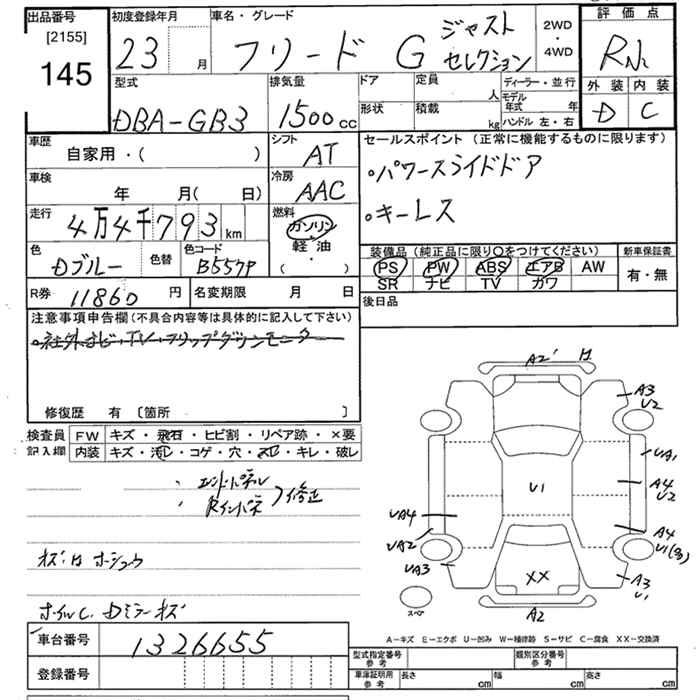 出品番号
[2155]
145
初度登録年月
23 月
車名・グレード
フリード G ジャスト
セレクション
2WD
・
4WD
評価点
外装 内装
D C
型式
DBA-GB3
排気量
1500cc
ドア
形状
定員 人
積載 kg
ディーラー・並行
モデル年式 年
ハンドル 左・右
車歴
自家用・( )
シフト
AT
セールスポイント (正常に機能するものに限ります)
・パワースライドドア
・キーレス
車検
年 月( 日)
冷房
AAC
走行
4万4千793km
燃料
ガソリン
・
軽油
・
( )
色
Dブルー
色替
色コード
B557P
装備品 (純正品に限り○をつけてください)
PS PW ABS エアB AW
SR ナビ TV カワ
新車保証書
有・無
R券 11860 円
名変期限 月 日
後日品
注意事項申告欄(不具合内容等は具体的に記入して下さい)
・社外ナビ・TV・フリップダウンモニター
修復歴 有 [箇所 ]
検査員
記入欄
FW キズ・飛石・ヒビ割・リペア跡・×要
内装 キズ・汚レ・コゲ・穴・スレ・キレ・破レ
・エンドパネル
・Rインパネ
修正
ホイルC. Dミラーキズ
車台番号 1326655
登録番号
A2 H
A3
U2
UA1
A4
U2
U1
UA4
UA2
UA3
A4
U1(多)
A3
U1
XX
A2
スペア
A-キズ E-エクボ U-凹み W-補修跡 S-サビ C-腐食 XX-交換済
型式指定番号
参考
類別区分番号
参考
車庫証明用
参考
長さ cm 幅 cm 高さ cm